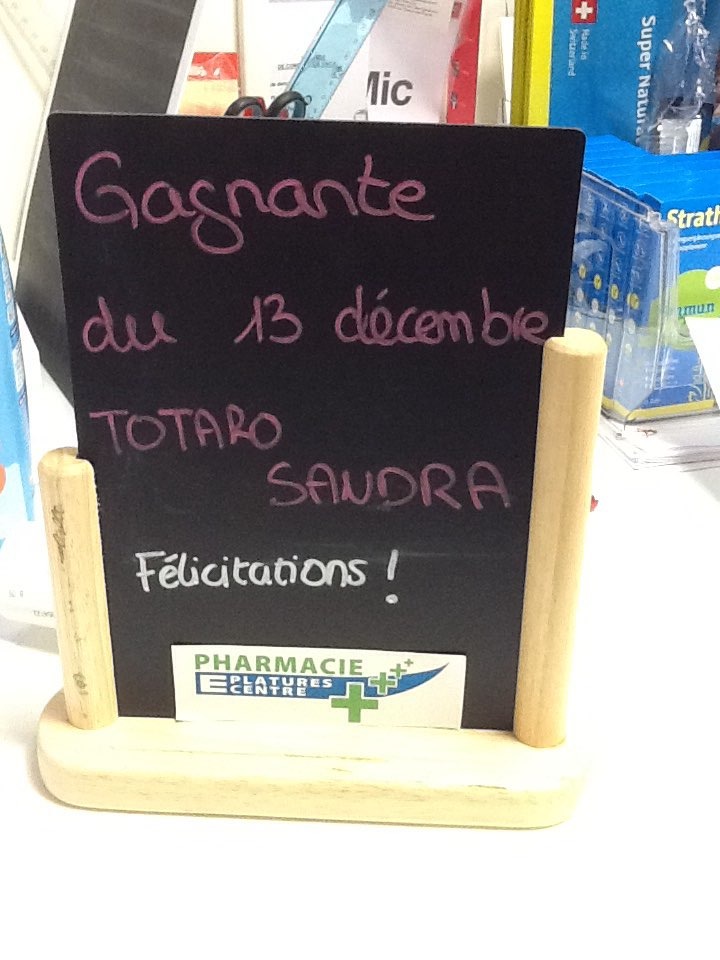 Mic
Made in
Switzerland
Super Natura
Strath
Gagnante
du 13 décembre
TOTARO
SANDRA
Félicitations !
PHARMACIE
EPLATURES
CENTRE